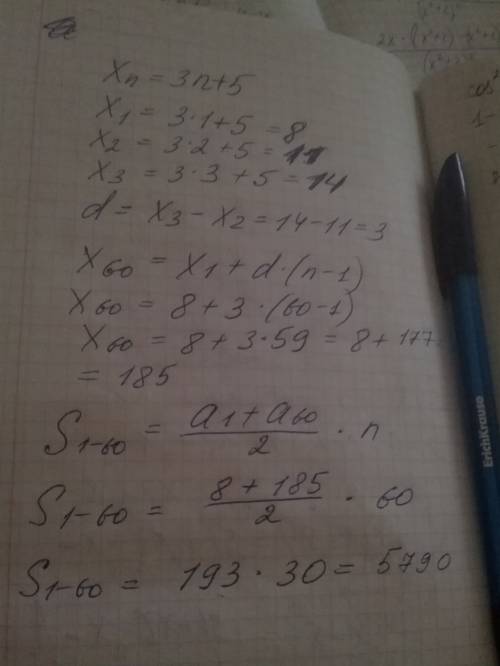 Xn = 3n+5
X1 = 3·1+5 = 8
X2 = 3·2+5 = 11
X3 = 3·3+5 = 14
d = X3 - X2 = 14-11 = 3
X60 = X1 + d·(n-1)
X60 = 8 + 3·(60-1)
X60 = 8 + 3·59 = 8 + 177
= 185
S1-60 = a1 + a60 / 2 · n
S1-60 = 8 + 185 / 2 · 60
S1-60 = 193 · 30 = 5790
ErichKrause